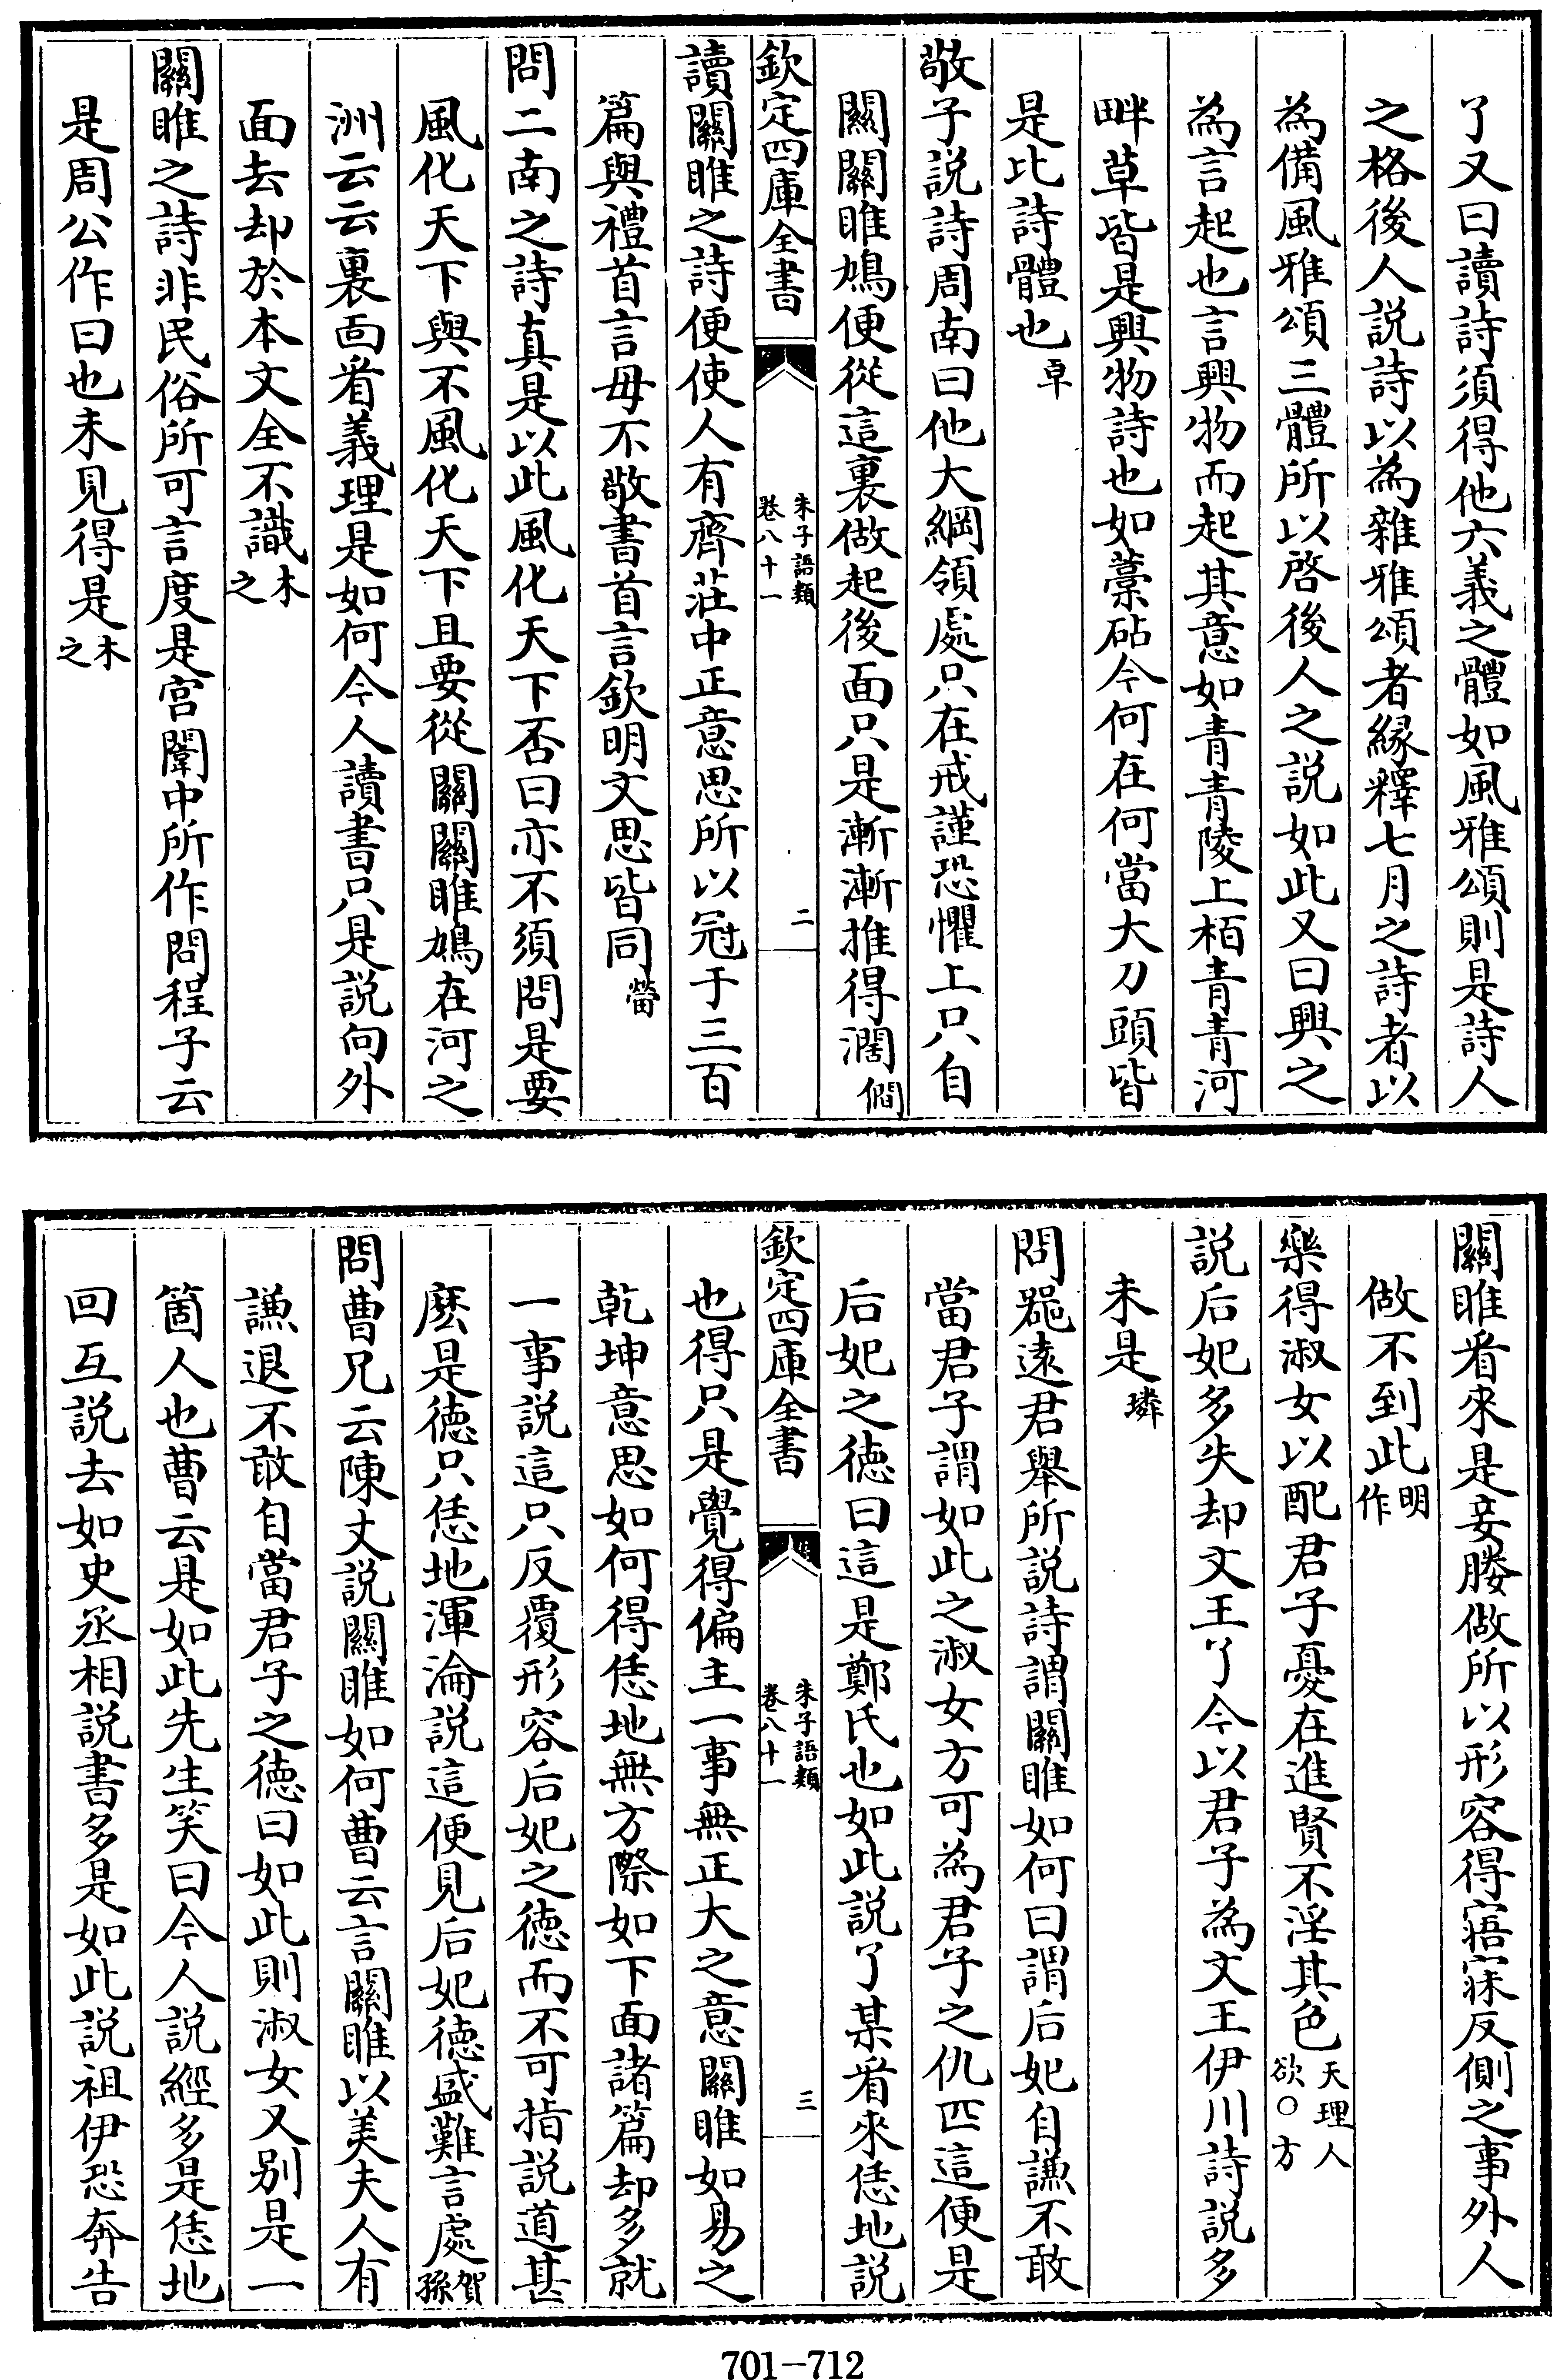 了又曰讀詩須得他六義之體如風雅頌則是詩人
之格後人説詩以為雜雅頌者縁釋七月之詩者以
為備風雅頌三體所以啓後人之説如此又曰興之
為言起也言興物而起其意如青青陵上栢青青河
畔草皆是興物詩也如藁砧今何在何當大刀頭皆
是比詩體也卓
敬子説詩周南曰他大綱領處只在戒謹恐懼上只自
關關睢鳩便從這裏做起後面只是漸漸推得濶僩
欽定四庫全書
朱子語類
卷八十一
二
讀關睢之詩便使人有齊莊中正意思所以冠于三百
篇與禮首言毋不敬書首言欽明文思皆同㽦
問二南之詩真是以此風化天下否曰亦不須問是要
風化天下與不風化天下且要從關關睢鳩在河之
洲云云裏面看義理是如何今人讀書只是説向外
面去却於本文全不識木之
關睢之詩非民俗所可言度是宫闈中所作問程子云
是周公作曰也未見得是木之
關睢看來是妾媵做所以形容得寤寐反側之事外人
做不到此明作
樂得淑女以配君子憂在進賢不淫其色天理人欲○方
説后妃多失却文王了今以君子為文王伊川詩説多
未是璘
問器逺君舉所説詩謂關睢如何曰謂后妃自謙不敢
當君子謂如此之淑女方可為君子之仇匹這便是
后妃之德曰這是鄭氏也如此説了某看來恁地説
欽定四庫全書
朱子語類
卷八十一
三
也得只是覺得偏主一事無正大之意關睢如易之
乾坤意思如何得恁地無方際如下面諸篇却多就
一事説這只反覆形容后妃之徳而不可指説道甚
麽是徳只恁地渾淪説這便見后妃徳盛難言處賀孫
問曹兄云陳丈説關睢如何曹云言關睢以美夫人有
謙退不敢自當君子之徳曰如此則淑女又别是一
箇人也曹云是如此先生笑曰今人説經多是恁地
回互説去如史丞相説書多是如此説祖伊恐奔告
701—712